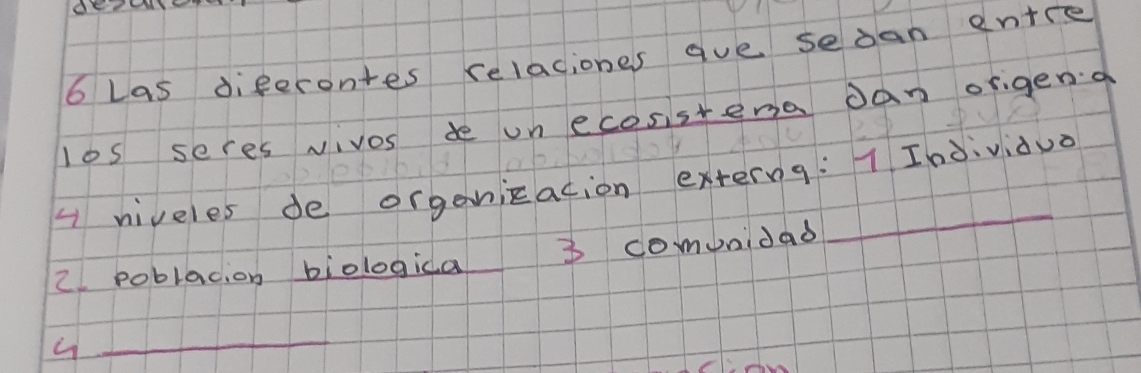 6 Las diferentes relaciones que se dan entre
los seres vivos de un ecosistema dan origen a
4 niveles de organizacion externa: 1 Individuo
2. poblacion biologica 3 comunidad
4